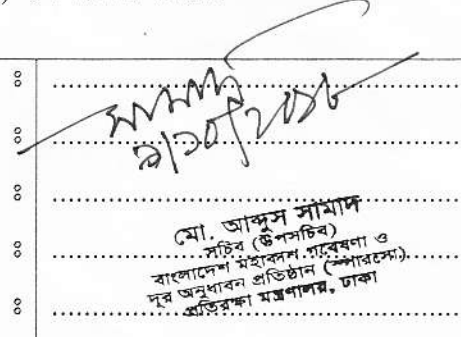 সামাদ
৯/১০/২০১৮
মো. আব্দুস সামাদ
সচিব (উপসচিব)
বাংলাদেশ মহাকাশ গবেষণা ও
দূর অনুধাবন প্রতিষ্ঠান (স্পারসো)
প্রতিরক্ষা মন্ত্রণালয়, ঢাকা